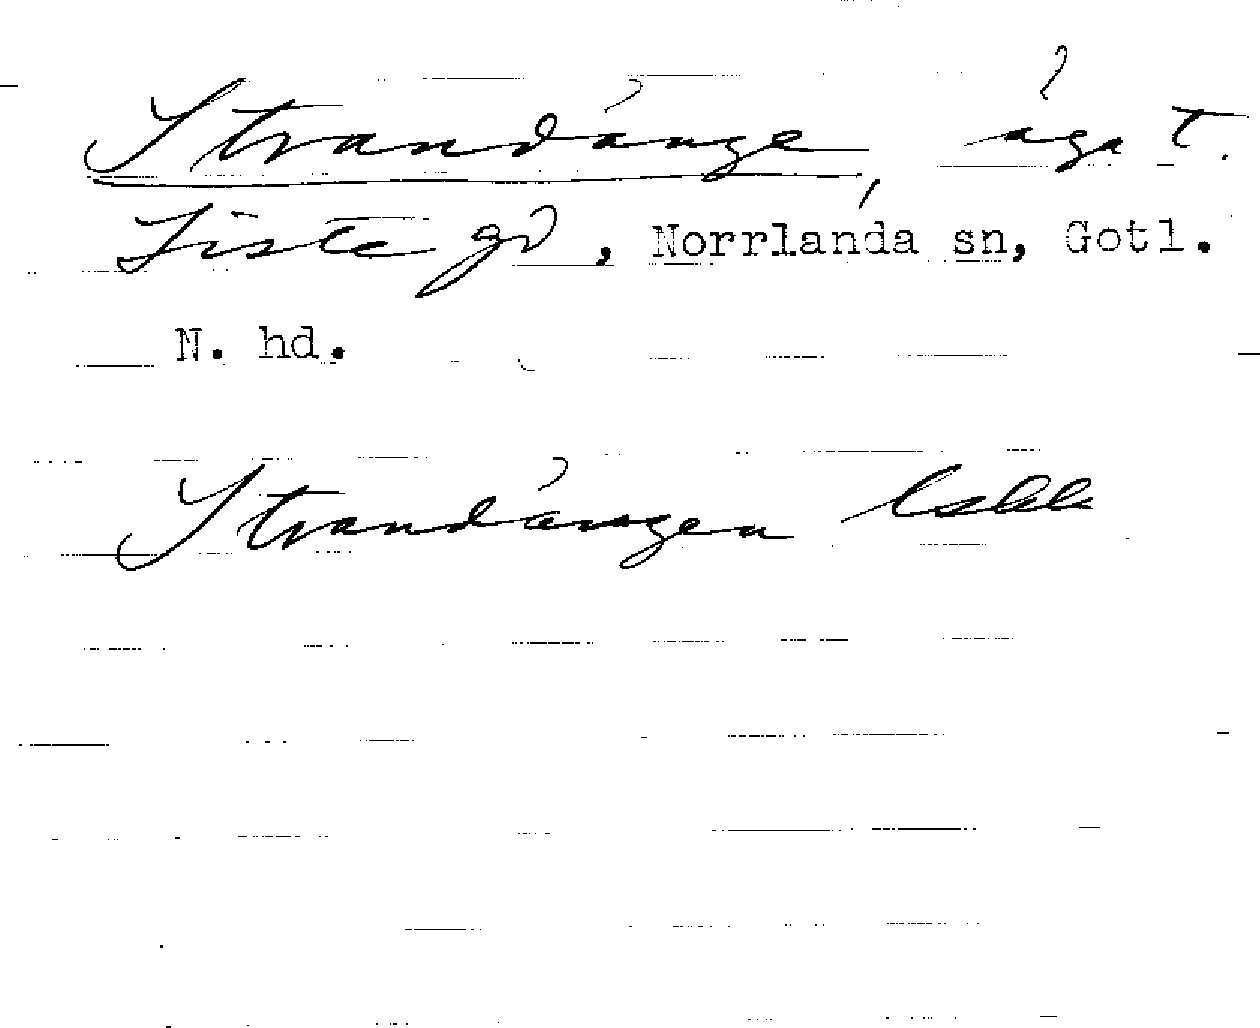 Strandänge, äga t.
Liste gd, Norrlanda sn, Gotl.
N. hd.
Strandängen